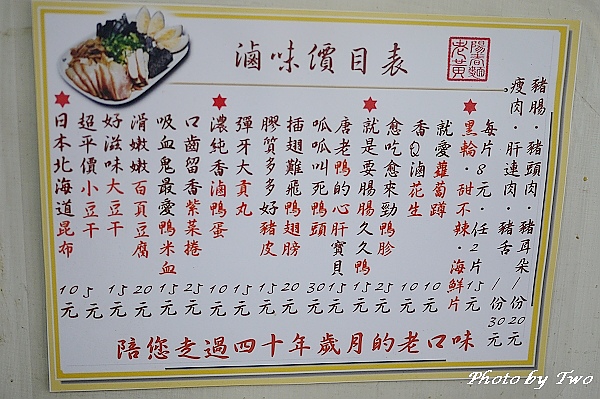 滷味價目表
老黃陽春麵
豬腸·豬頭肉·豬耳朵/份20元
瘦肉·肝連肉·豬舌/份30元
每片8元·任2片15元
黑輪·甜不辣·海鮮片
就愛蘿蔔蹲10元
香Q滷花生10元
愈吃愈來勁鴨胗25元
就是要腸久久鴨15元
唐老鴨的心肝寶貝15元
呱呱叫死鴨頭30元
插翅難飛鴨翅膀20元
膠質多多好豬皮15元
彈牙大貢丸15元
濃純香滷鴨蛋10元
口齒留香紫菜捲25元
吸血鬼最愛鴨米血15元
滑嫩嫩百頁豆腐20元
好滋味大豆干15元
超平價小豆干5元
日本北海道昆布10元
陪您走過四十年歲月的老口味
Photo by Two